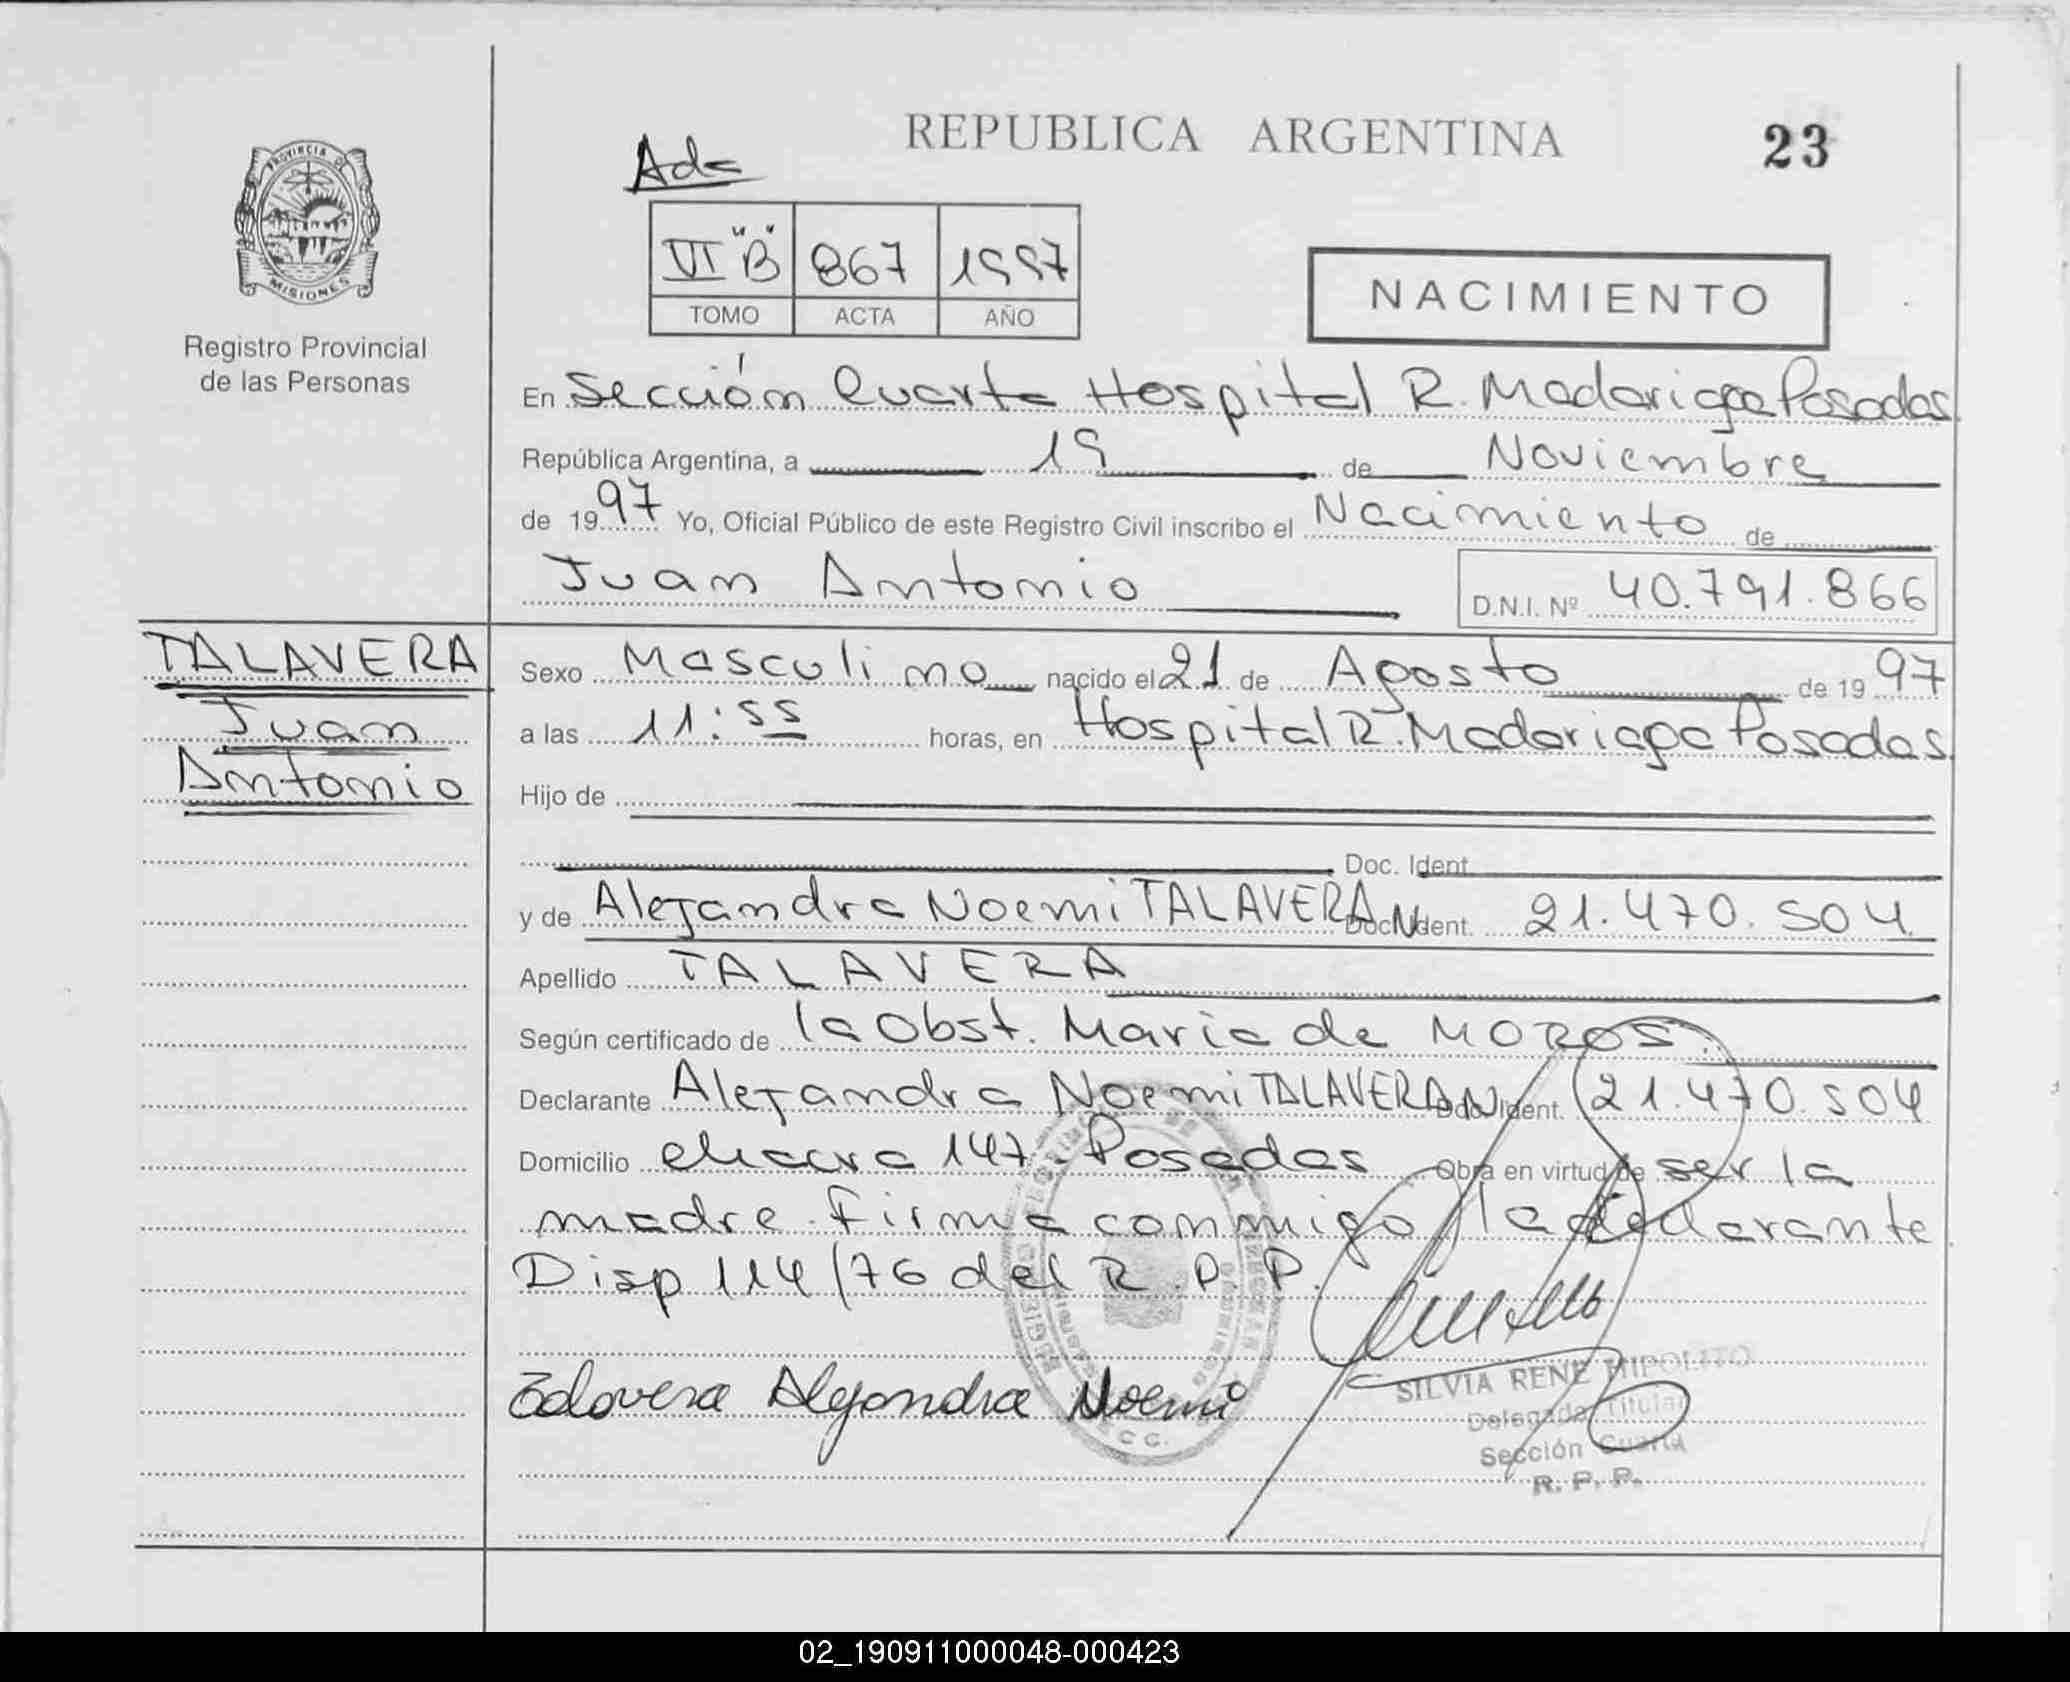 REPUBLICA ARGENTINA
23
Ads
VI "B" 867 1997
TOMO ACTA AÑO
NACIMIENTO
PROVINCIA DE
MISIONES
Registro Provincial
de las Personas
En Sección Cuarta Hospital R. Madariaga Posadas
República Argentina, a 19 de Noviembre
de 1997 Yo, Oficial Público de este Registro Civil inscribo el Nacimiento de
Juan Antonio D.N.I. Nº 40.791.866
TALAVERA
Juan
Antonio
Sexo Masculino nacido el 21 de Agosto de 1997
a las 11:55 horas, en Hospital R. Madariaga Posadas
Hijo de
Doc. Ident.
y de Alejandra Noemi TALAVERA DN Doc. Ident. 21.470.504
Apellido TALAVERA
Según certificado de la Obst. Maria de MOROS
Declarante Alejandra Noemi TALAVERA DN Doc. Ident. 21.470.504
Domicilio chacra 147. Posadas Obra en virtud de ser la
madre. Firma conmigo la declarante
Disp 114/76 del R.P.P.
Talavera Alejandra Noemi
SILVIA RENE HIPOLITO
Delegada Titular
Sección Cuarta
R. P. P.
02_190911000048-000423